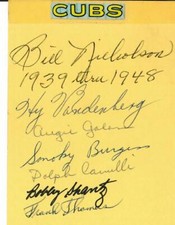 CUBS
Bill Nicholson
1939 thru 1948
Hy Vandenberg
Augie Galan
Smoky Burgess
Dolph Camilli
Bobby Shantz
Frank Thomas